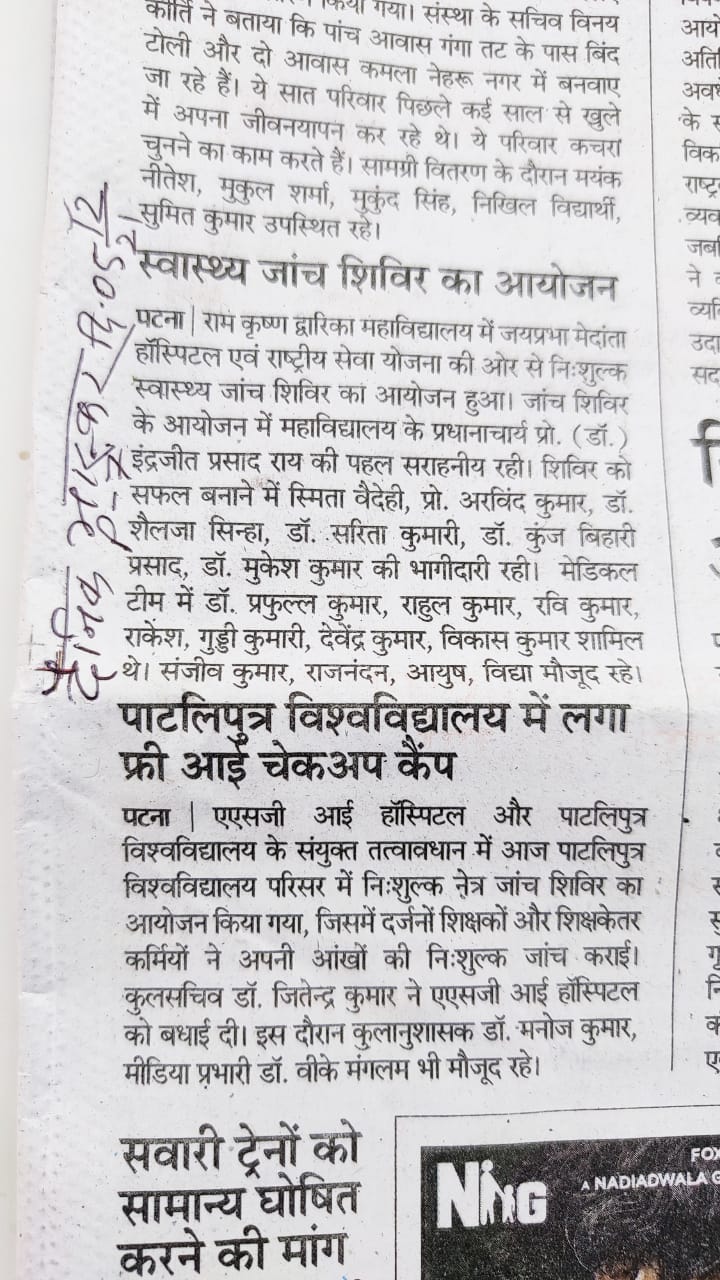 कीर्ति ने बताया कि पांच आवास गंगा तट के पास बिंद
टोली और दो आवास कमला नेहरू नगर में बनवाए
जा रहे हैं। ये सात परिवार पिछले कई साल से खुले
में अपना जीवनयापन कर रहे थे। ये परिवार कचरा
चुनने का काम करते हैं। सामग्री वितरण के दौरान मयंक
नीतेश, मुकुल शर्मा, मुकुंद सिंह, निखिल विद्यार्थी,
सुमित कुमार उपस्थित रहे।
स्वास्थ्य जांच शिविर का आयोजन
पटना | राम कृष्ण द्वारिका महाविद्यालय में जयप्रभा मेदांता
हॉस्पिटल एवं राष्ट्रीय सेवा योजना की ओर से निःशुल्क
स्वास्थ्य जांच शिविर का आयोजन हुआ। जांच शिविर
के आयोजन में महाविद्यालय के प्रधानाचार्य प्रो. (डॉ.)
इंद्रजीत प्रसाद राय की पहल सराहनीय रही। शिविर को
सफल बनाने में स्मिता वैदेही, प्रो. अरविंद कुमार, डॉ.
शैलजा सिन्हा, डॉ. सरिता कुमारी, डॉ. कुंज बिहारी
प्रसाद, डॉ. मुकेश कुमार की भागीदारी रही। मेडिकल
टीम में डॉ. प्रफुल्ल कुमार, राहुल कुमार, रवि कुमार,
राकेश, गुड्डी कुमारी, देवेंद्र कुमार, विकास कुमार शामिल
थे। संजीव कुमार, राजनंदन, आयुष, विद्या मौजूद रहे।
दैनिक भास्कर
पाटलिपुत्र विश्वविद्यालय में लगा
फ्री आई चेकअप कैंप
पटना | एएसजी आई हॉस्पिटल और पाटलिपुत्र
विश्वविद्यालय के संयुक्त तत्वावधान में आज पाटलिपुत्र
विश्वविद्यालय परिसर में निःशुल्क नेत्र जांच शिविर का
आयोजन किया गया, जिसमें दर्जनों शिक्षकों और शिक्षकेतर
कर्मियों ने अपनी आंखों की निःशुल्क जांच कराई।
कुलसचिव डॉ. जितेन्द्र कुमार ने एएसजी आई हॉस्पिटल
को बधाई दी। इस दौरान कुलानुशासक डॉ. मनोज कुमार,
मीडिया प्रभारी डॉ. वीके मंगलम भी मौजूद रहे।
सवारी ट्रेनों को
सामान्य घोषित
करने की मांग
FOX
A NADIADWALA G